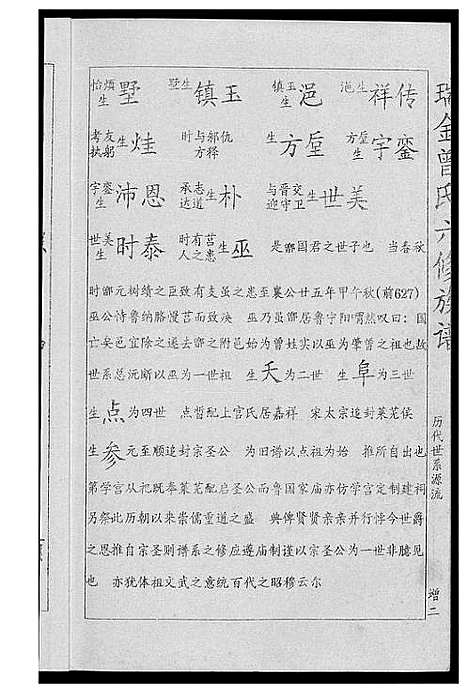 瑞金曾氏六修族谱
历代世系源流
增二
怡烦生墅 墅生镇玉 镇玉生浥 浥生祥传
考友扶躬生烓 时与郝仇方释 生方垕 方垕生宇銮
宇銮生沛恩 承志达道生朴 与晋交迎守卫生世美
世美生时泰 时有莒人之恚生巫 是鄫国君之世子也 当春秋
时鄫元树绩之臣致有支虽之恚至襄公廿五年甲午秋(前627)
巫公恃鲁纳赂慢莒而致 巫乃虽鄫居鲁宁阳喟然叹曰：国
亡矣邑宜除之遂去鄫之附邑始为曾姓实以巫为肇曾之祖也故
世系总沅断以巫为一世祖 生夭为二世 生阜为三世
生点为四世 点晢配上官氏居嘉祥 宋太宗追封莱芜侯
生参元至顺追封宗圣公 为旧谱以点祖为始 推所自出也
第学宫从祀既奉莱芜配启圣公而鲁国家庙亦仿学宫定制建祠
另祭此历朝以来崇儒重道之盛 典俾贤贤亲亲并行悖今世爵
之恩推自宗圣则谱系之修应遵庙制谨以宗圣公为一世非臆见
也 亦犹体祖文武之意统百代之昭穆云尔